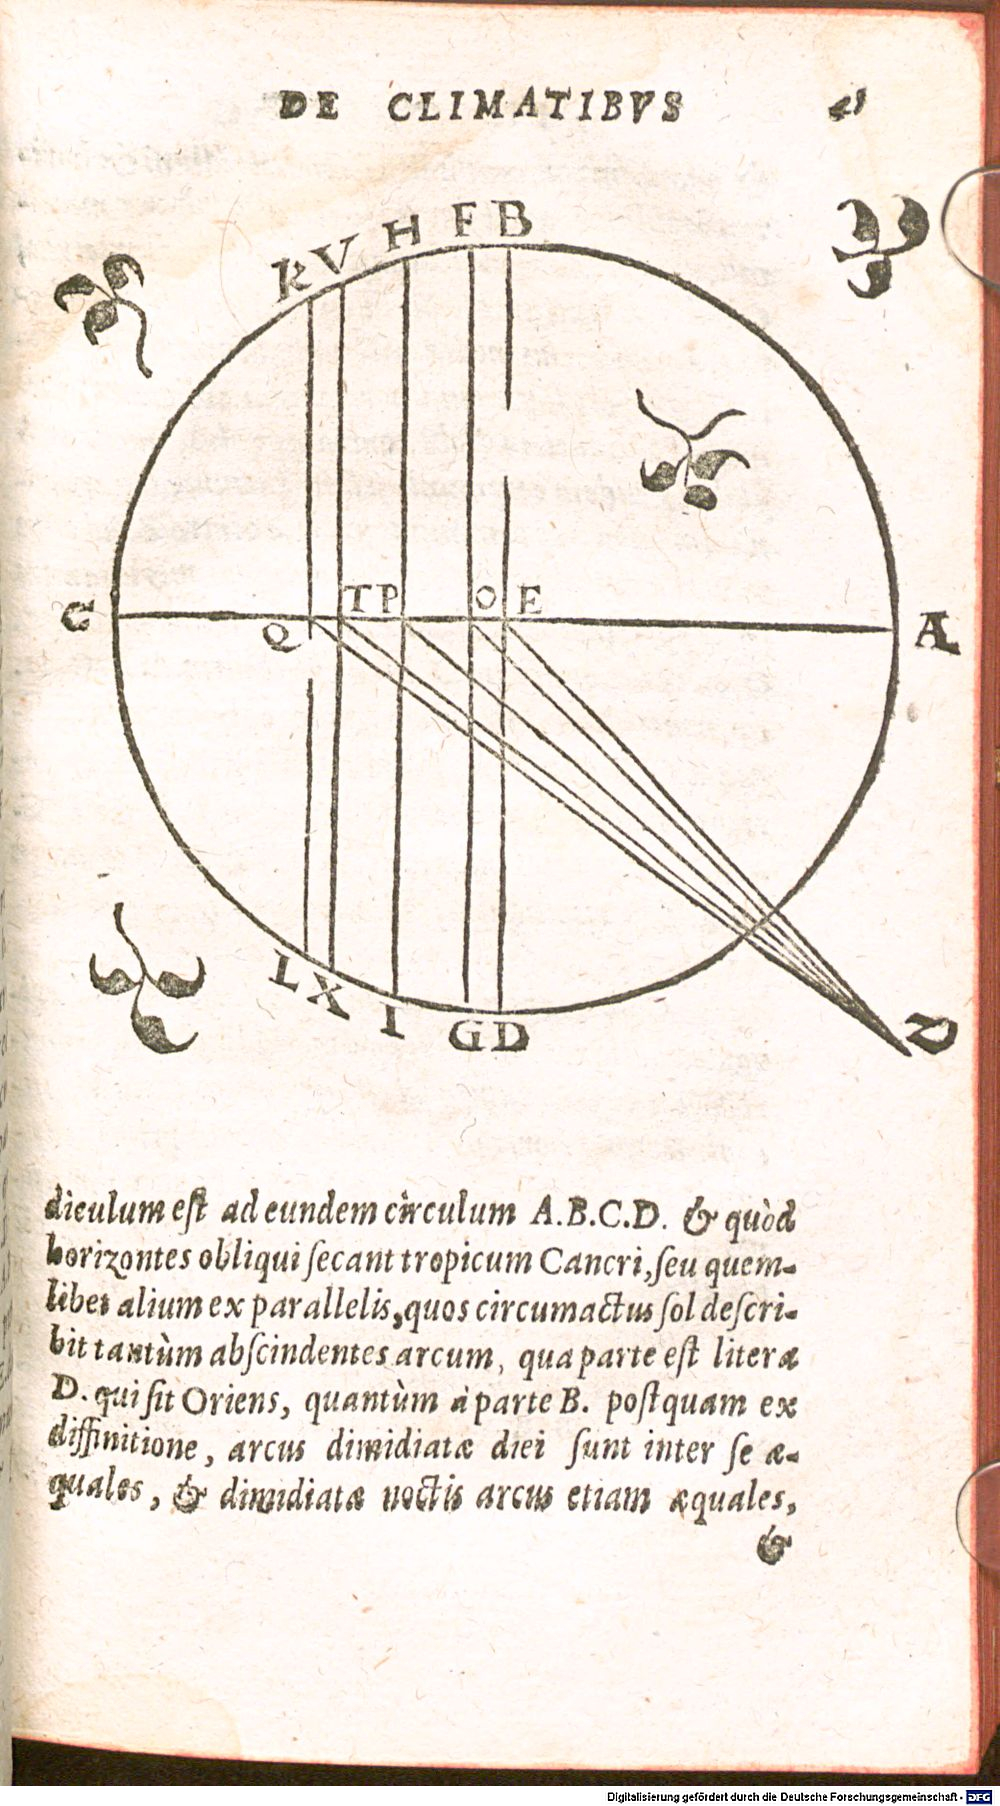 DE CLIMATIBVS 41
K V H F B
C T P O E A
Q
L X I G D D
diculum eſt ad eundem circulum A.B.C.D. & quòd
horizontes obliqui ſecant tropicum Cancri, ſeu quem-
libet alium ex parallelis, quos circumactus ſol deſcri-
bit tantùm abſcindentes arcum, qua parte eſt literæ
D. qui ſit Oriens, quantùm à parte B. poſtquam ex
diffinitione, arcus dimidiatæ diei ſunt inter ſe æ-
quales, & dimidiatæ noctis arcus etiam æquales,
&
Digitalisierung gefördert durch die Deutsche Forschungsgemeinschaft - DFG